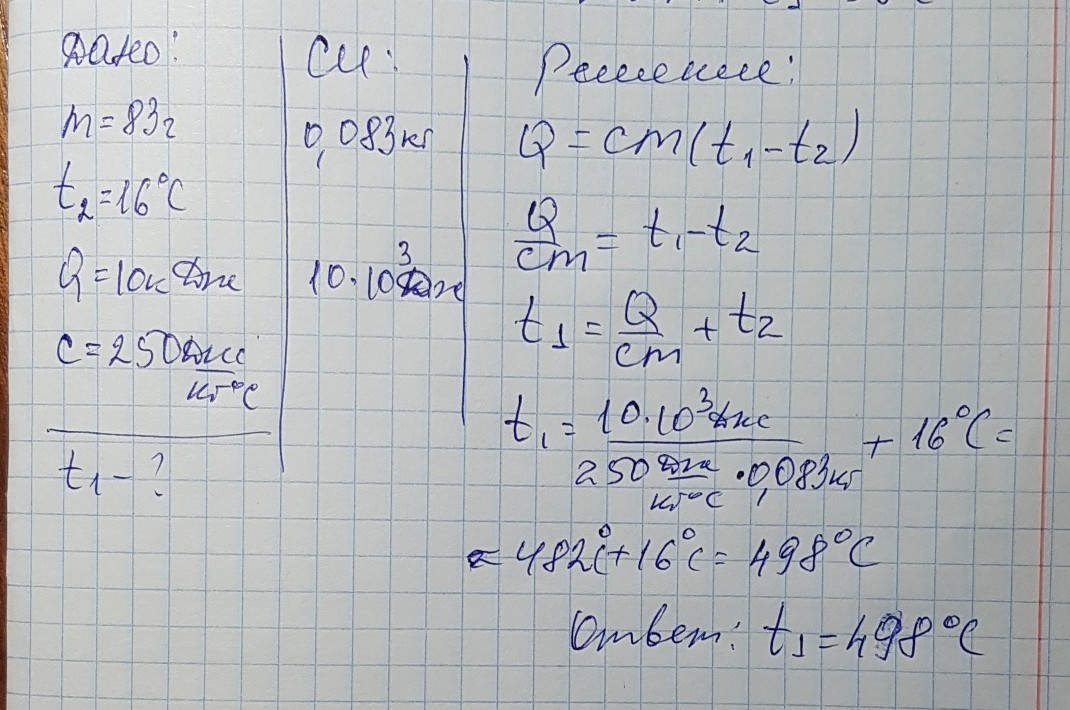 Дано:
m=83г
t₂=16°C
Q=10кДж
c=250 Дж/кг°C
t₁-?
СИ:
0,083кг
10·10³Дж
Решение:
Q=cm(t₁-t₂)
Q/cm = t₁-t₂
t₁ = Q/cm + t₂
t₁ = 10·10³Дж / 250 Дж/кг°C ·0,083кг + 16°C =
= 482°C+16°C= 498°C
Ответ: t₁=498°C